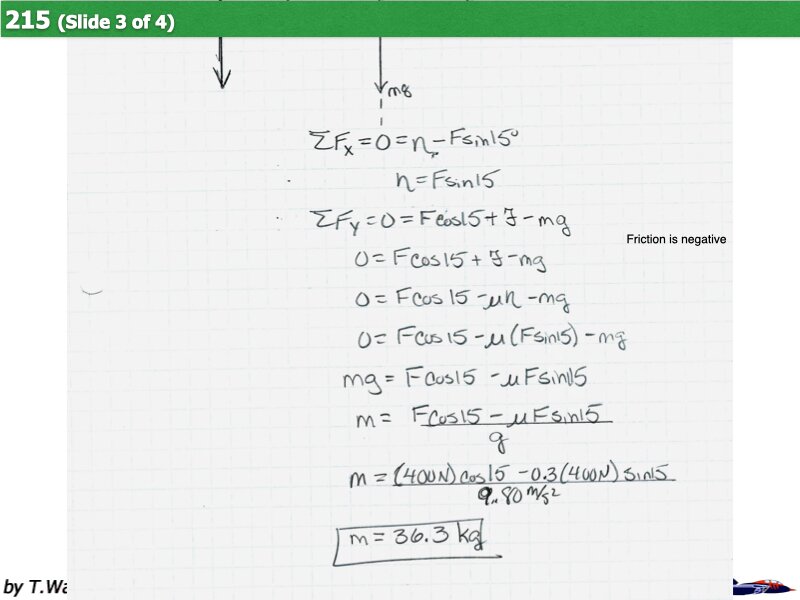 215 (Slide 3 of 4)
mg
ΣFx = 0 = n - Fsin15°
n = Fsin15
ΣFy = 0 = Fcos15 + f - mg
Friction is negative
0 = Fcos15 + f - mg
0 = Fcos15 - μn - mg
0 = Fcos15 - μ(Fsin15) - mg
mg = Fcos15 - μFsin15
m = Fcos15 - μFsin15
g
m = (400N)cos15 - 0.3(400N)sin15
9.80 m/s²
m = 36.3 kg
by T.Wa